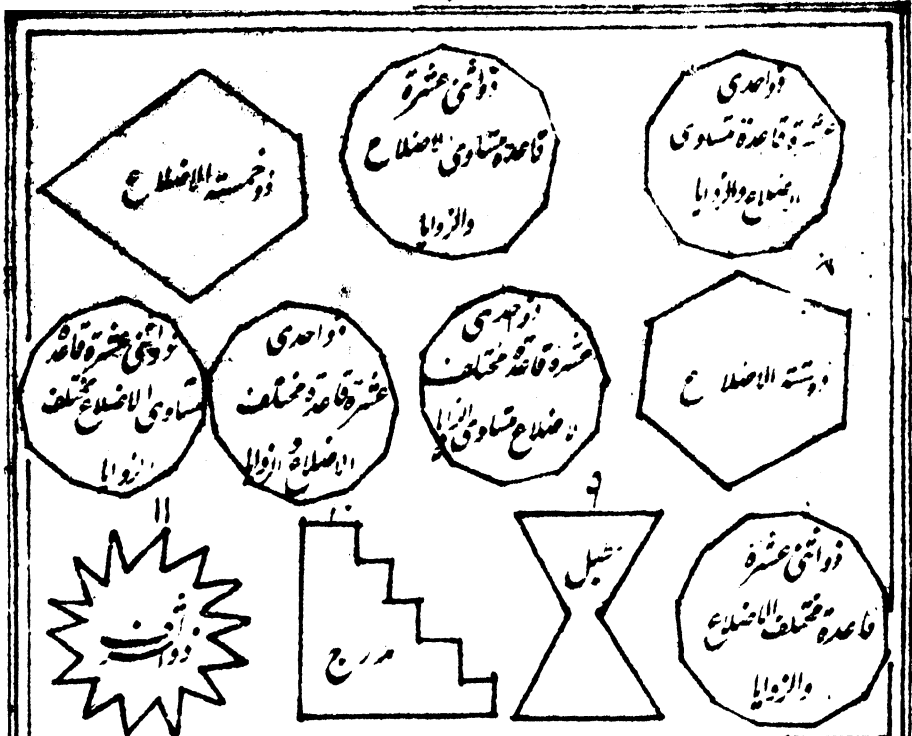 ذو احدی
عشرة قاعدة متساوی
الاضلاع والزوایا
ذو اثنی عشرة
قاعدة متساوی الاضلاع
والزوایا
ذو خمسة الاضلاع
ذو ستة الاضلاع
ذو احدی
عشرة قاعدة مختلف
الاضلاع متساوی الزوایا
ذو احدی
عشرة قاعدة مختلف
الاضلاع و الزوایا
ذو اثنی عشرة قاعدة
متساوی الاضلاع مختلف
الزوایا
ذو اثنی عشرة
قاعدة مختلف الاضلاع
والزوایا
۹
طبل
۱۰
مدرج
۱۱